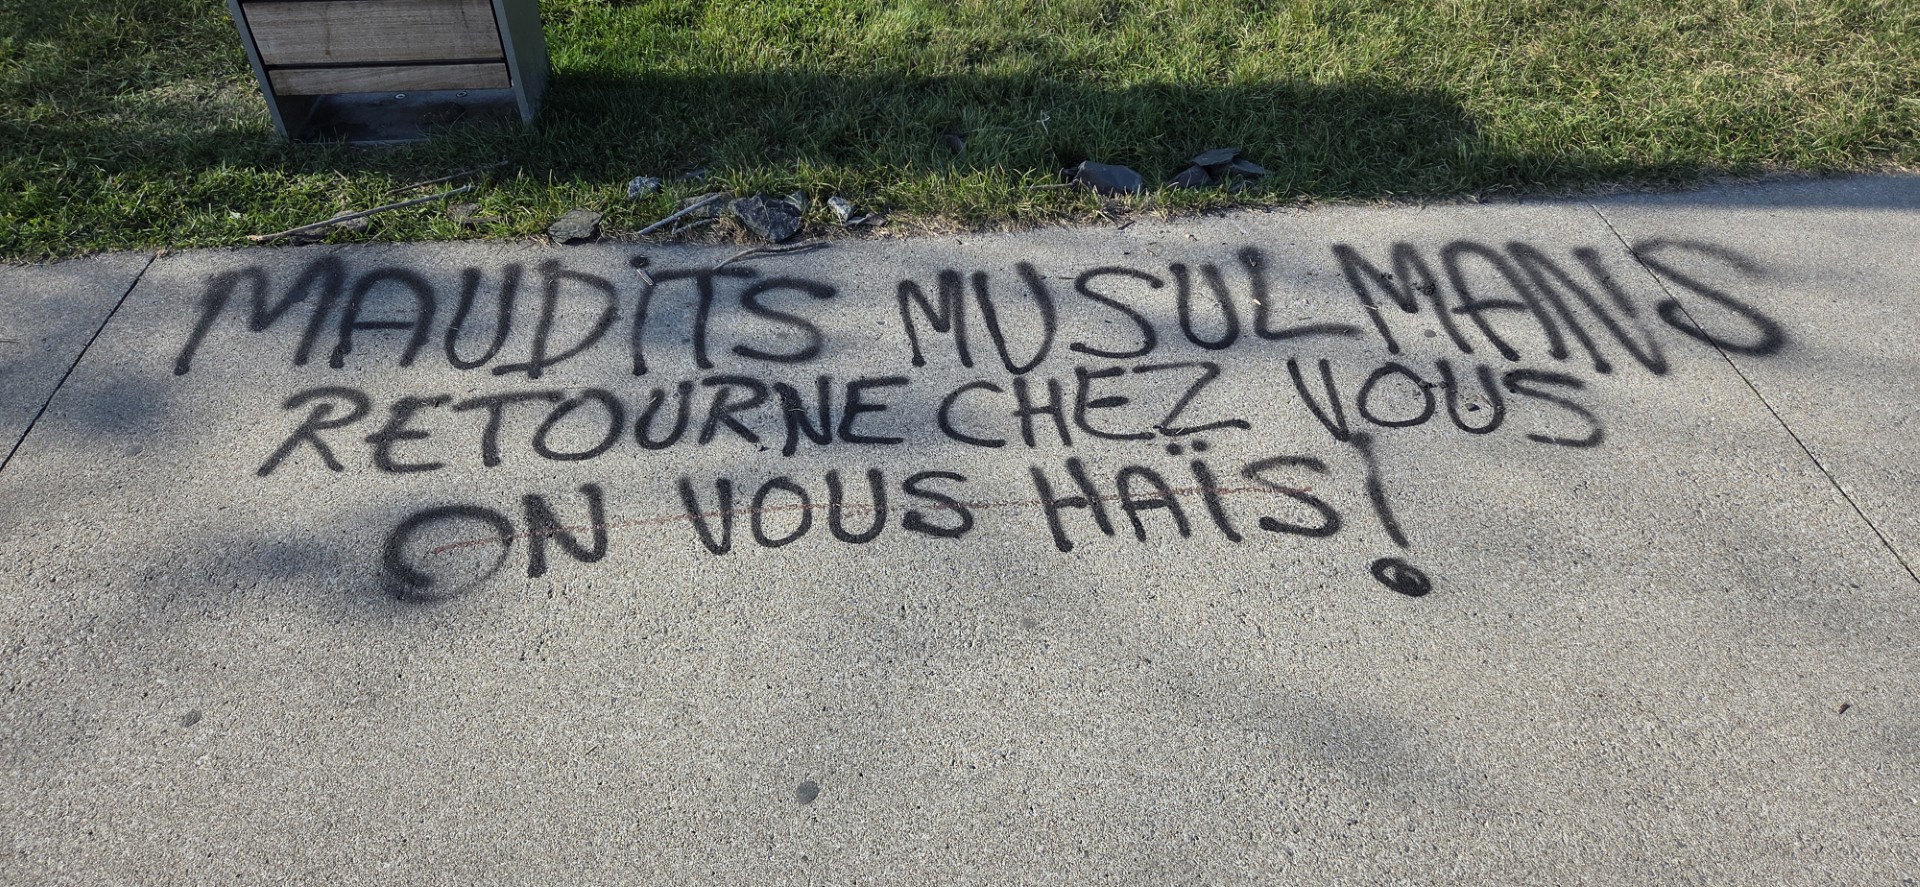 MAUDiTS MUSULMANS
RETOURNE CHEZ VOUS
ON VOUS HAÏS!